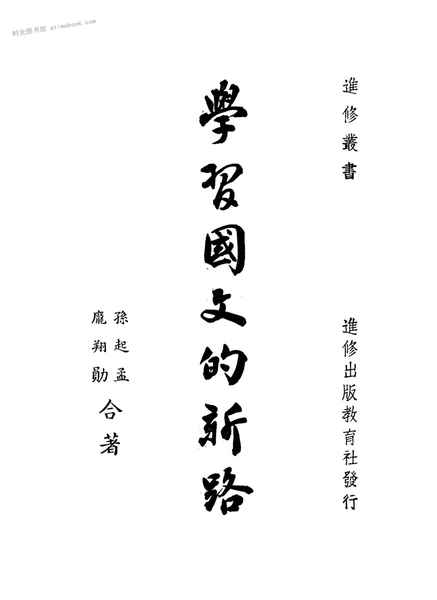 时光图书馆 
進修叢書
進修出版教育社發行
學習國文的新路
孫起孟
龐翔勛
合著